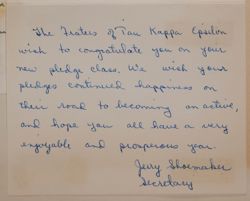 The Fraters of Tau Kappa Epsilon
wish to congratulate you on your
new pledge class. We wish your
pledges continued happiness on
their road to becoming an active,
and hope you all have a very
enjoyable and prosperous year.
Jerry Shoemaker
Secretary